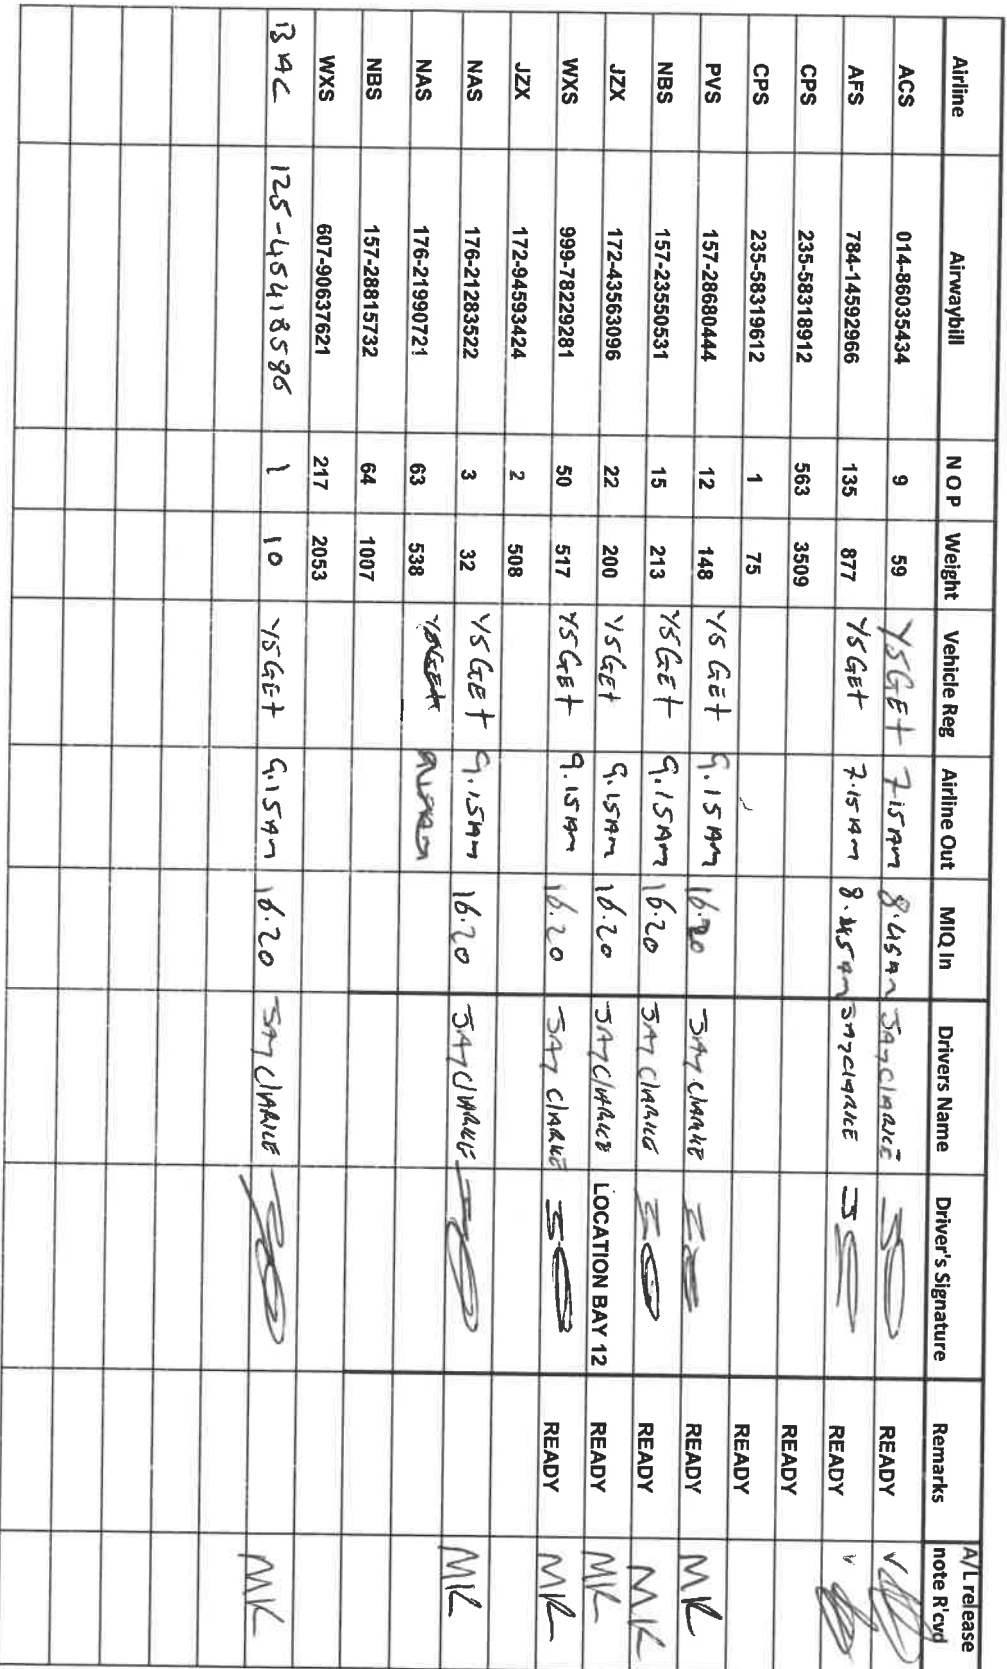 Airline Airwaybill N O P Weight Vehicle Reg Airline Out MIQ In Drivers Name Driver's Signature Remarks A/L release note R'cvd
ACS 014-86035434 9 59 Y5GEt 7.15Am 8.45Am JAY CLARKE READY
AFS 784-14592966 135 877 Y5GEt 7.15Am 8.45Am JAY CLARKE READY
CPS 235-58318912 563 3509 READY
CPS 235-58319612 1 75 READY
PVS 157-28680444 12 148 Y5GEt 9.15Am 16.20 JAY CLARKE READY MK
NBS 157-23550531 15 213 Y5GEt 9.15Am 16.20 JAY CLARKE READY MK
JZX 172-43563096 22 200 Y5GEt 9.15Am 16.20 JAY CLARKE LOCATION BAY 12 READY MK
WXS 999-78229281 50 517 Y5GEt 9.15Am 16.20 JAY CLARKE READY MK
JZX 172-94593424 2 508
NAS 176-21283522 3 32 Y5GEt 9.15Am 16.20 JAY CLARKE MK
NAS 176-21990721 63 538
NBS 157-28815732 64 1007
WXS 607-90637621 217 2053
BAC 125-45418586 1 10 Y5GEt 9.15Am 16.20 JAY CLARKE MK